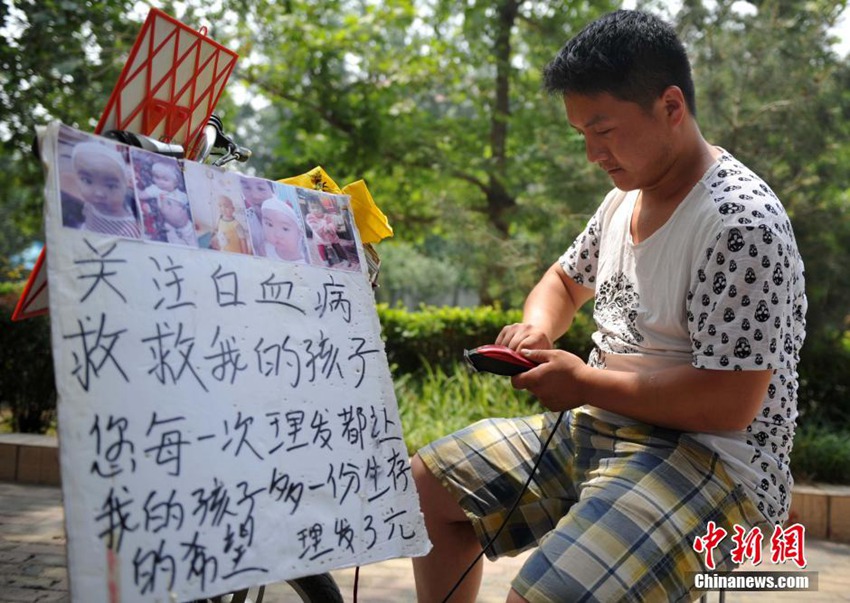 关注白血病
救救我的孩子
您每一次理发都让
我的孩子多一份生存
的希望 理发3元
中新网
www.
Chinanews.com